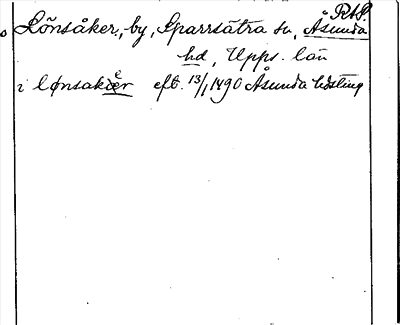 RAP.
Lönsåker, by, Sparrsätra sn, Åsunda
hd, Upps. län
i lønsakær eft. 13/1 1490 Åsunda hdsting